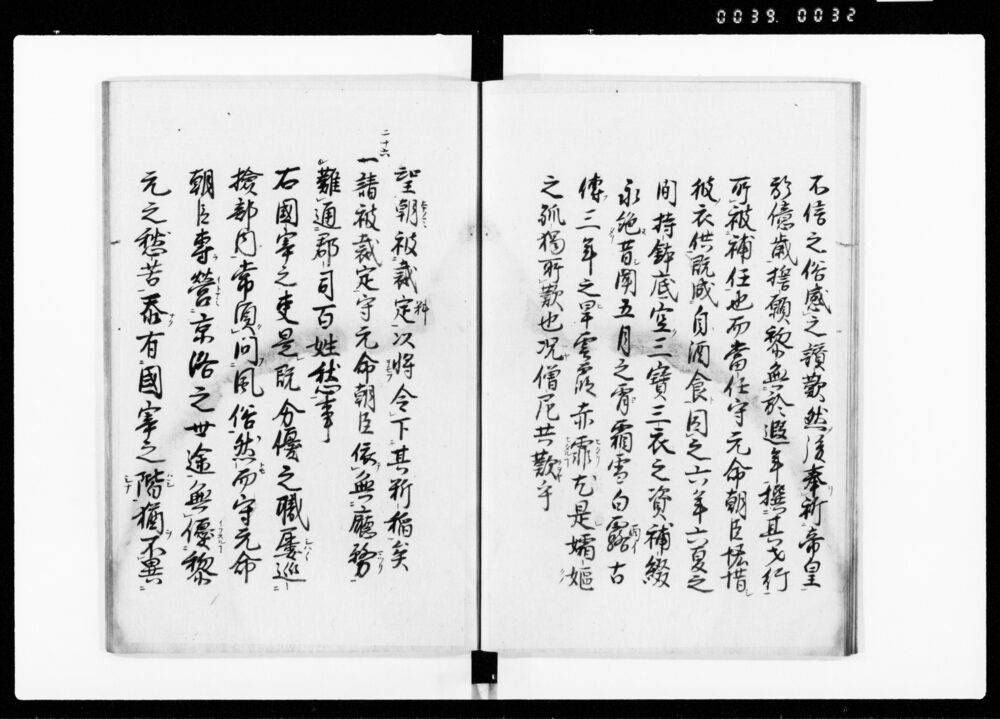 0039. 0032
不信之俗感之讃歎然後奉祈帝皇
於億歳捨願黎無於遐年撰其才行
所被補任也而當任守元命朝臣慳惜
彼衣供既成自酒食因之六年六夏之
間持鉢底空三寶三衣之資補綴
永絶昔聞五月之霄霜雪白露古
傳三年之旱雲霞赤霏尤是孀嫗
之孤獨所歎也况僧尼共歎乎
聖朝被裁定以將令下其新稲矣
二十六
一請被裁定守元命朝臣依無廳務
難通郡司百姓愁事
右國宰之吏是既分優之職屡巡
撿部内常須問風俗然而守元命
朝臣専營京洛之世途無優黎
元之愁苦忝有國宰之階猶不異